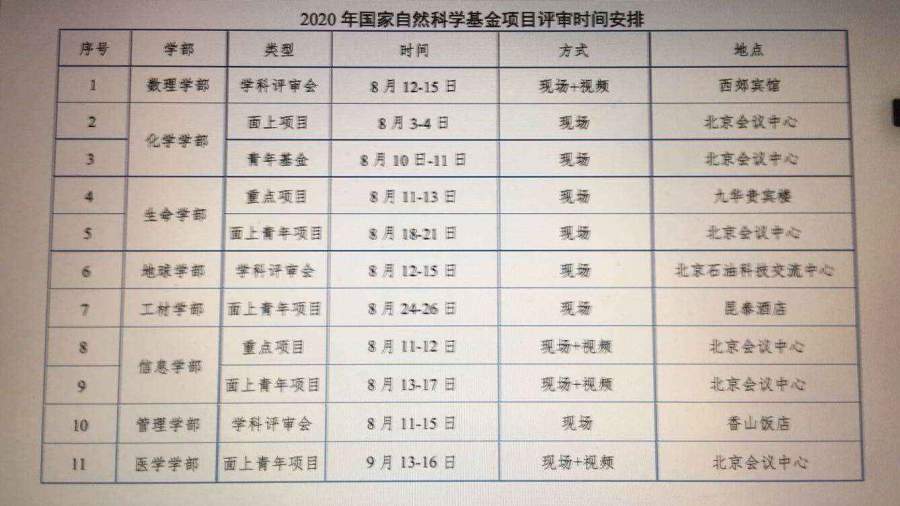 2020 年国家自然科学基金项目评审时间安排
序号 学部 类型 时间 方式 地点
1 数理学部 学科评审会 8 月 12-15 日 现场+视频 西郊宾馆
2 化学学部 面上项目 8 月 3-4 日 现场 北京会议中心
3 青年基金 8 月 10 日-11 日 现场 北京会议中心
4 生命学部 重点项目 8 月 11-13 日 现场 九华贵宾楼
5 面上青年项目 8 月 18-21 日 现场 北京会议中心
6 地球学部 学科评审会 8 月 12-15 日 现场 北京石油科技交流中心
7 工材学部 面上青年项目 8 月 24-26 日 现场 昆泰酒店
8 信息学部 重点项目 8 月 11-12 日 现场+视频 北京会议中心
9 面上青年项目 8 月 13-17 日 现场+视频 北京会议中心
10 管理学部 学科评审会 8 月 11-15 日 现场 香山饭店
11 医学学部 面上青年项目 9 月 13-16 日 现场+视频 北京会议中心